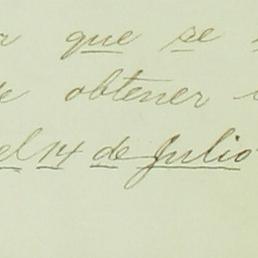 que se
obtener
el 14 de Julio